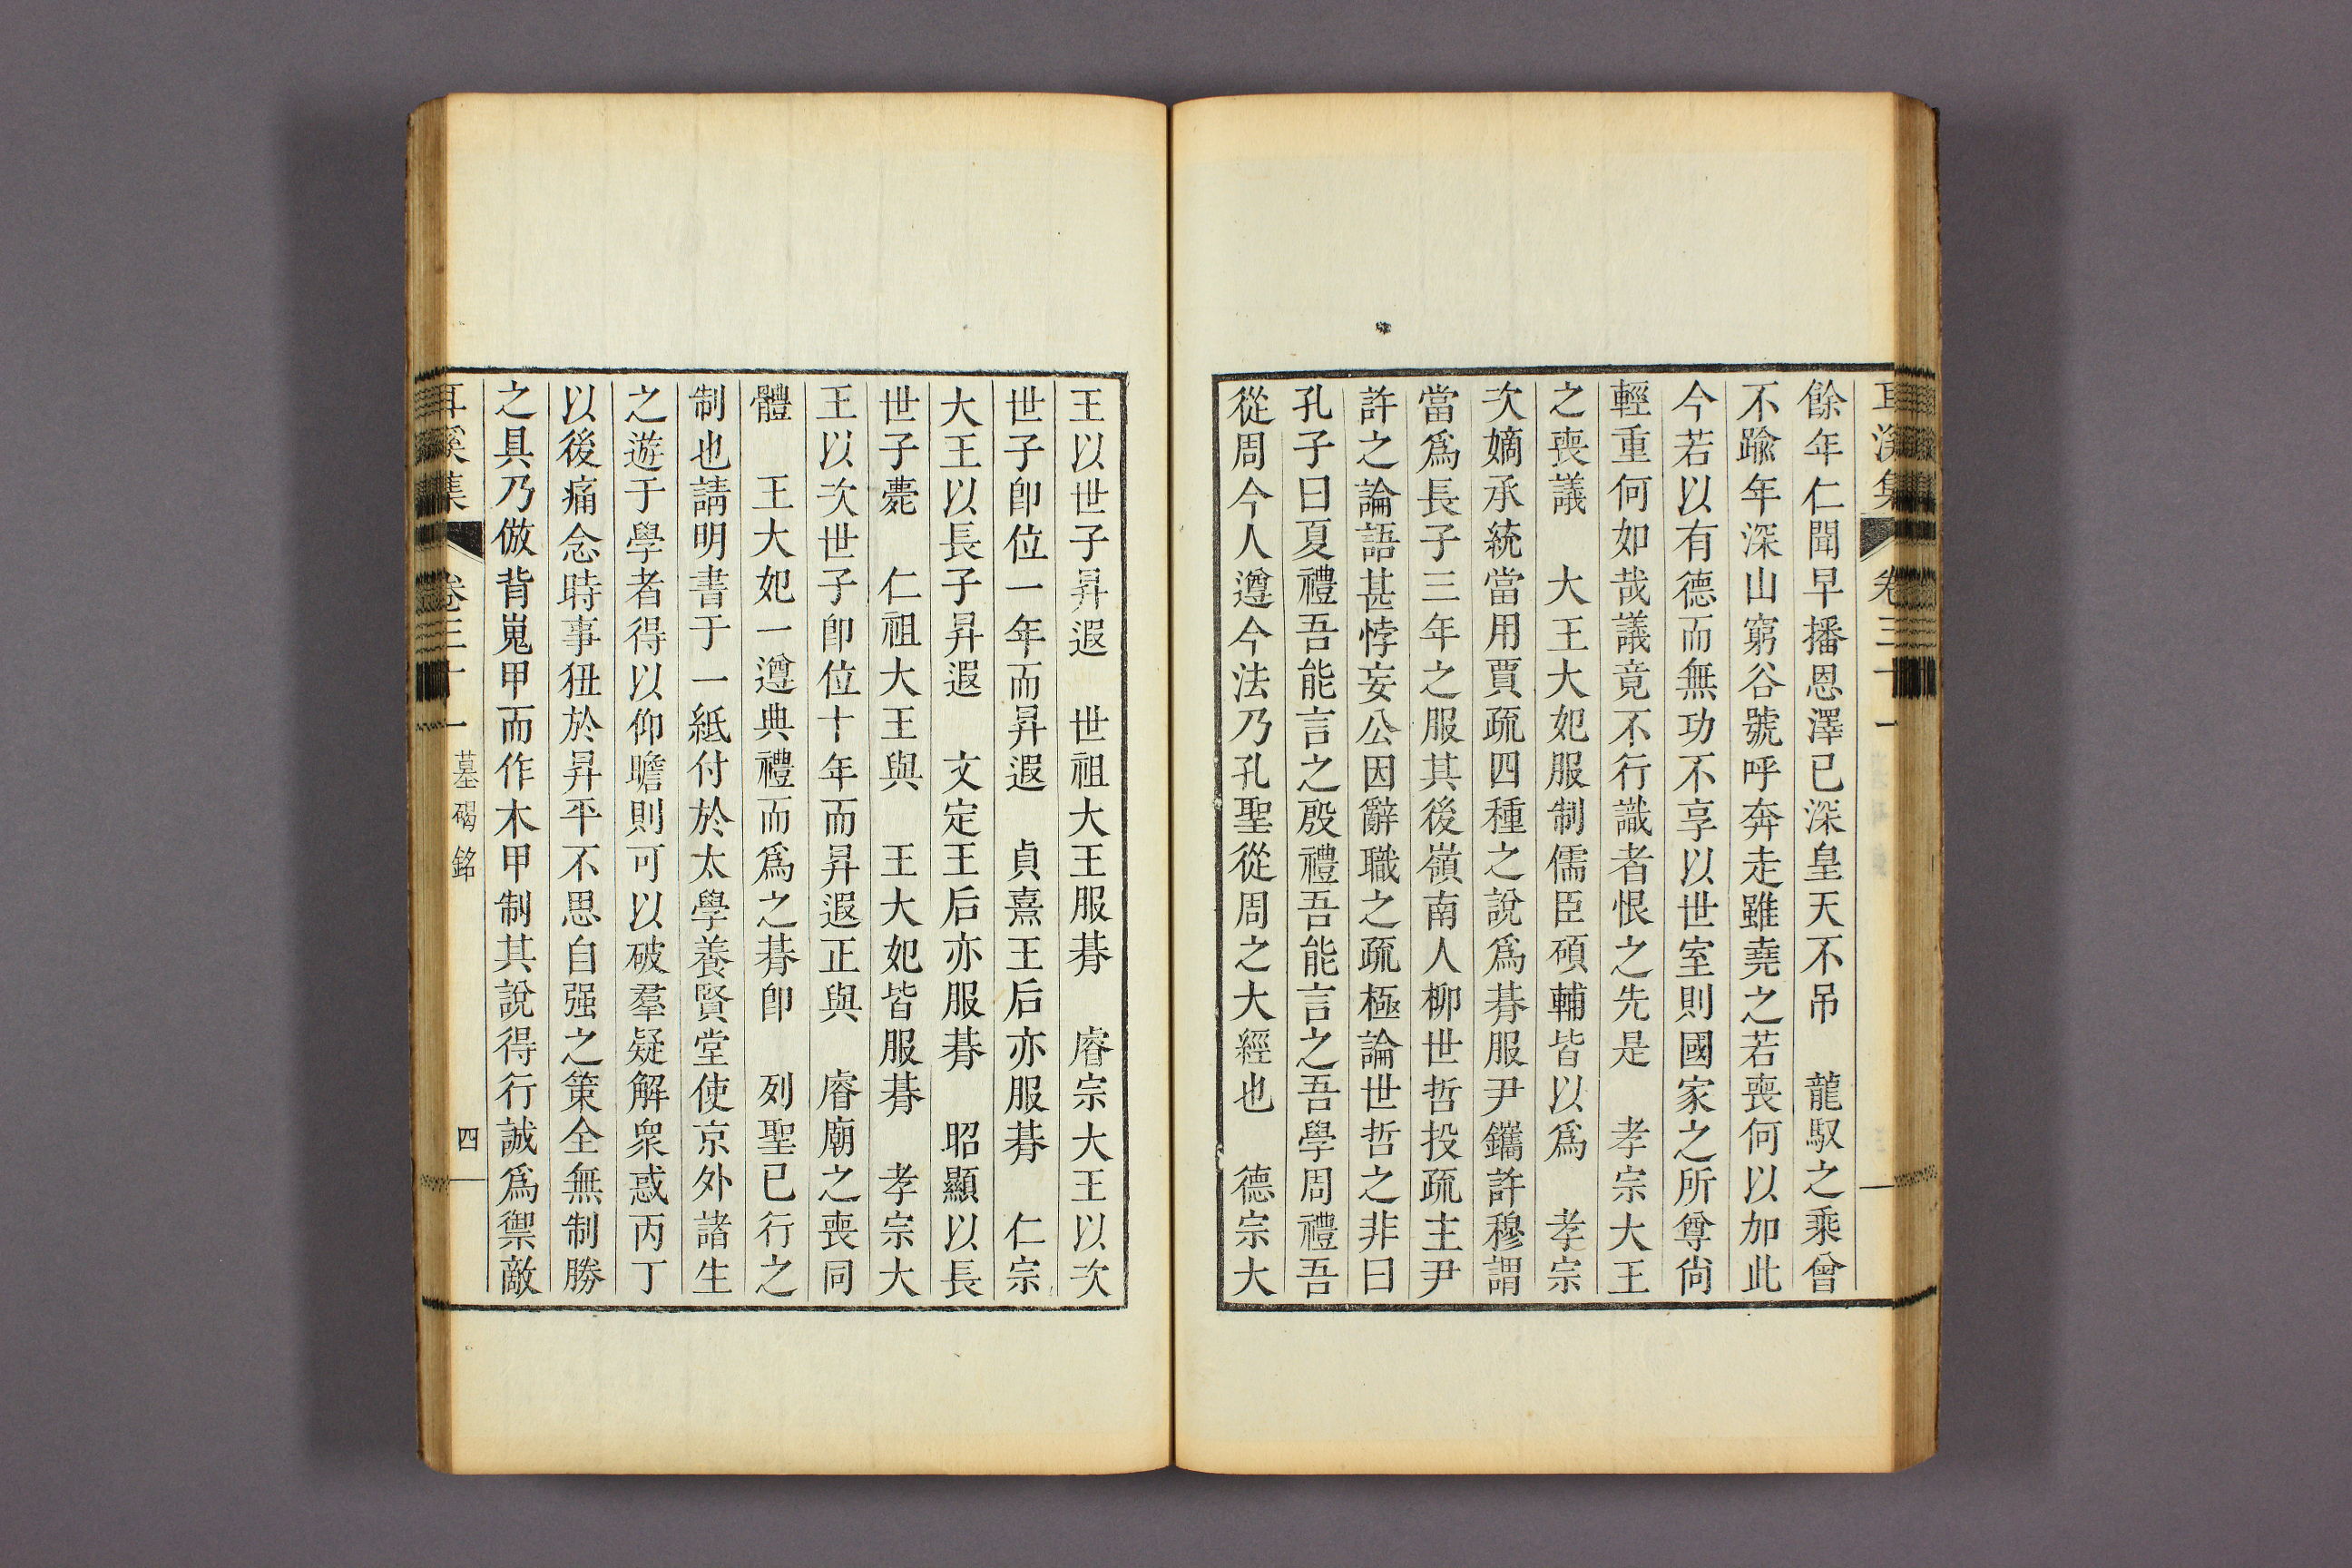 耳溪集 卷三十一
餘年仁聞早播恩澤已深皇天不吊　龍馭之乘曾
不踰年深山窮谷號呼奔走雖堯之若喪何以加此
今若以有德而無功不享以世室則國家之所尊尙
輕重何如哉議竟不行識者恨之先是　孝宗大王
之喪議　大王大妃服制儒臣碩輔皆以爲　孝宗
次嫡承統當用賈疏四種之說爲朞服尹鑴許穆謂
當爲長子三年之服其後嶺南人柳世哲投疏主尹
許之論語甚悖妄公因辭職之疏極論世哲之非曰
孔子曰夏禮吾能言之殷禮吾能言之吾學周禮吾
從周今人遵今法乃孔聖從周之大經也　德宗大
王以世子昇遐　世祖大王服朞　睿宗大王以次
世子卽位一年而昇遐　貞熹王后亦服朞　仁宗
大王以長子昇遐　文定王后亦服朞　昭顯以長
世子薨　仁祖大王與　王大妃皆服朞　孝宗大
王以次世子卽位十年而昇遐正與　睿廟之喪同
體　王大妃一遵典禮而爲之朞卽　列聖已行之
制也請明書于一紙付於太學養賢堂使京外諸生
之遊于學者得以仰瞻則可以破羣疑解衆惑丙丁
以後痛念時事狃於昇平不思自强之策全無制勝
之具乃倣背嵬甲而作木甲制其說得行誠爲禦敵
耳溪集 卷三十一 墓碣銘 四